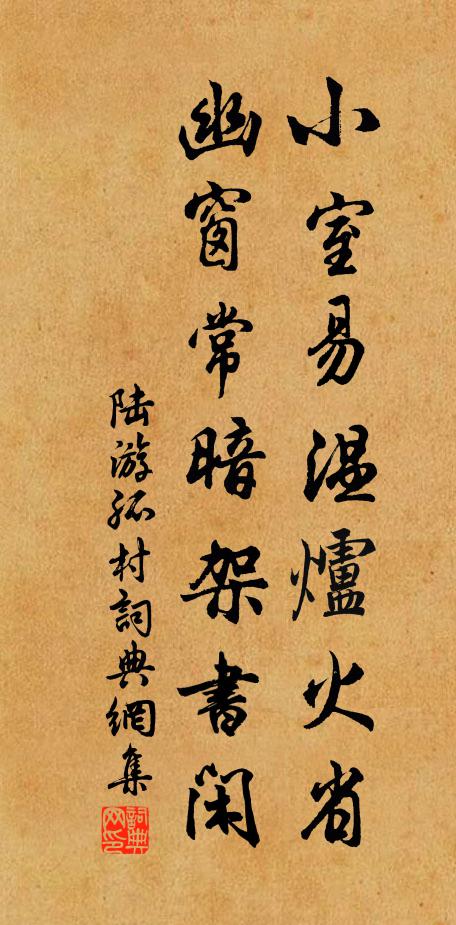 小室易温爐火省
幽窗常暗架書閑
陆游孤村詞典網集
詞典网印